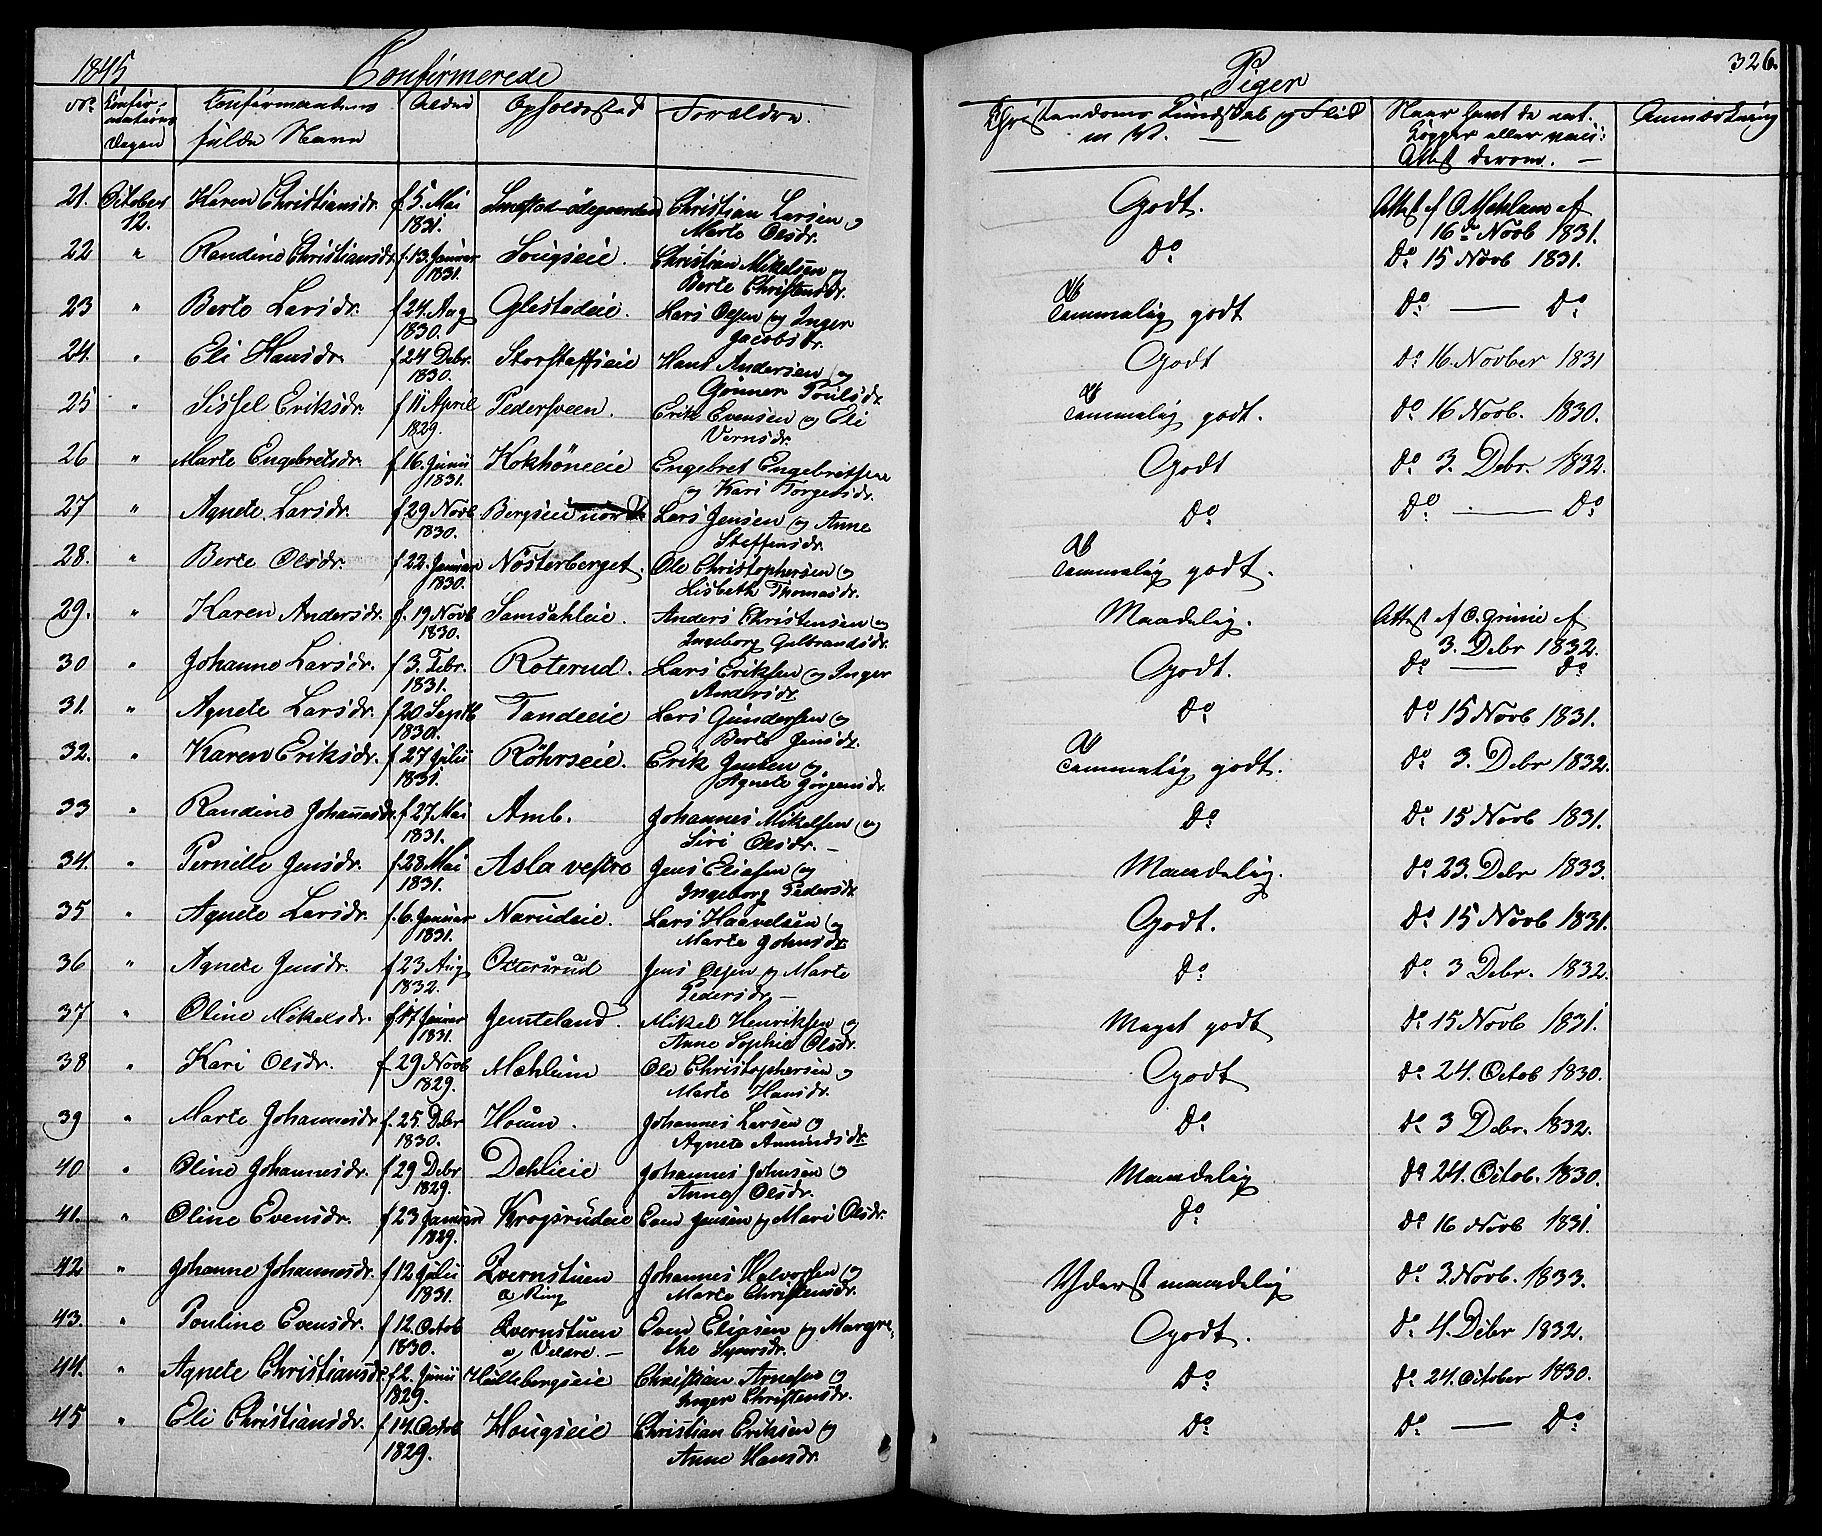 1845 Confirmerede Piger 326.
No. Confirmations Dagen Konfirmantens fulde Navn Alder Opholdssted Forældre. Christendoms Kundskab og Flid m. V. — Naar havt de nat. Kopper eller vacc: Attest derom. — Anmærkning
21. October 12. Karen Christiansdr. f. 5. Mai 1831. Christian Larsen og Marte Olsdr. Godt. Attest af O. Mehlum af 16de Novb 1831.
22 " Randine Christiansdr. f. 13. Januar 1831. Christian Mikelsen og Berte Christensdr. Do Do 15 Novb 1831.
23 " Berte Larsdr. f 24. Aug 1830. Glestadeie. Lars Olsen og Inger Jacobsdr. Temmelig godt Do — Do
24. " Eli Hansdr. f 24 Debr. 1830. Storstaffseie Hans Andersen og Gunner Poulsdr. Godt Do 16. Novber 1831
25 " Sissel Eriksdr. f 11 April 1829. Pedersveen. Erik Evensen og Eli Temmelig godt. Do 16 Novb. 1830.
26 " Marte Engebretsdr. f 16. Junii 1831. Engebret Engebretsen og Kari Torgersdr. Godt Do 3. Debr. 1832.
27 " Agnete Larsdr. f 29 Novb 1830. Bergseie Lars Jensen og Anne Steffensdr. Do Do — Do
28. " Berte Olsdr. f 22. Januar 1830. Nösterberget. Ole Christophersen og Lisbeth Thomasdr. Temmelig godt.
29. " Karen Andersdr. f. 19 Novb 1830. Samsahleie. Anders Christensen og Ingeborg Gulbrandsdr. Maadelig. Attest af C. Grimie af 3. Debr 1832.
30 " Johanne Larsdr. f 3. Febr. 1831. Roterud. Lars Eriksen og Inger Andersdr. Godt. Do — Do
31. " Agnete Larsdr. f 20 Septb 1830. Tandeeie Lars Gundersen og Berte Jensdr. Do Do 15 Novb 1831.
32. " Karen Eriksdr. f 27 Julii 1831. Röhrseie. Erik Jensen og Agnete Jörgensdr. Temmelig godt. Do 3. Debr 1832.
33 " Randine Johannesdr. f 27. Mai 1831. Amb. Johannes Mikelsen og Siri Olsdr. — Do Do 15 Novb 1831.
34. " Pernille Jensdr. f. 28. Mai 1831. Asla vestre Jens Eliasen og Ingeborg Pedersdr. Maadelig. Do 23. Debr 1833.
35 " Agnete Larsdr. f. 6. Januar 1831. Narudeie. Lars Haavelsen og Marte Johnsdr. Godt. Do 15 Novb 1831.
36 " Agnete Jensdr. f 23 Aug 1832. Jens Olsen og Marte Pedersdr. — Do Do 3 Debr. 1832.
37 " Oline Mikelsdr. f 17 Januar 1831. Jemteland. Mikel Henriksen og Anne Sophie Olsdr. Meget godt Do 15 Novb 1831.
38 " Kari Olsdr. f 29 Novb 1829. Mehlum Ole Christophersen og Marte Hansdr. Godt Do 24. Octob 1830.
39 " Marte Johannesdr f. 25. Debr 1830. Johannes Larsen og Agnete Amundsdr. Do Do 3 Debr. 1832.
40 " Oline Johannesdr. f 29 Debr 1829. Dehlieie Johannes Johnsen og Anne Olsdr. Maadelig Do 24. Octob. 1830.
41. " Oline Evensdr. f 23 Januar 1829. Krogsrudeie Even Jensen og Mari Olsdr. Do Do 16 Novb 1831
42 " Johanne Johannesdr. f 12 Julii 1831. Qvernstuen a/ Ring Johannes Halvorsen og Marte Christensdr. Yderst maadelig Do 3. Novb. 1833.
43. " Pouline Evensdr. f 12. Octob 1830. Qvernstuen a/ Veldre. — Even Eliasen og Margrethe Syversdr. Godt. Do 4. Debr 1832.
44. " Agnete Christiansdr f 2. Junii 1829. Hullebergseie Christian Arnesen og Inger Christensdr. Do Do 24. October 1830.
45 " Eli Christiansdr. f 14. Octob 1829. Hougseie Christian Eriksen og Anne Hansdr. Do Do — Do